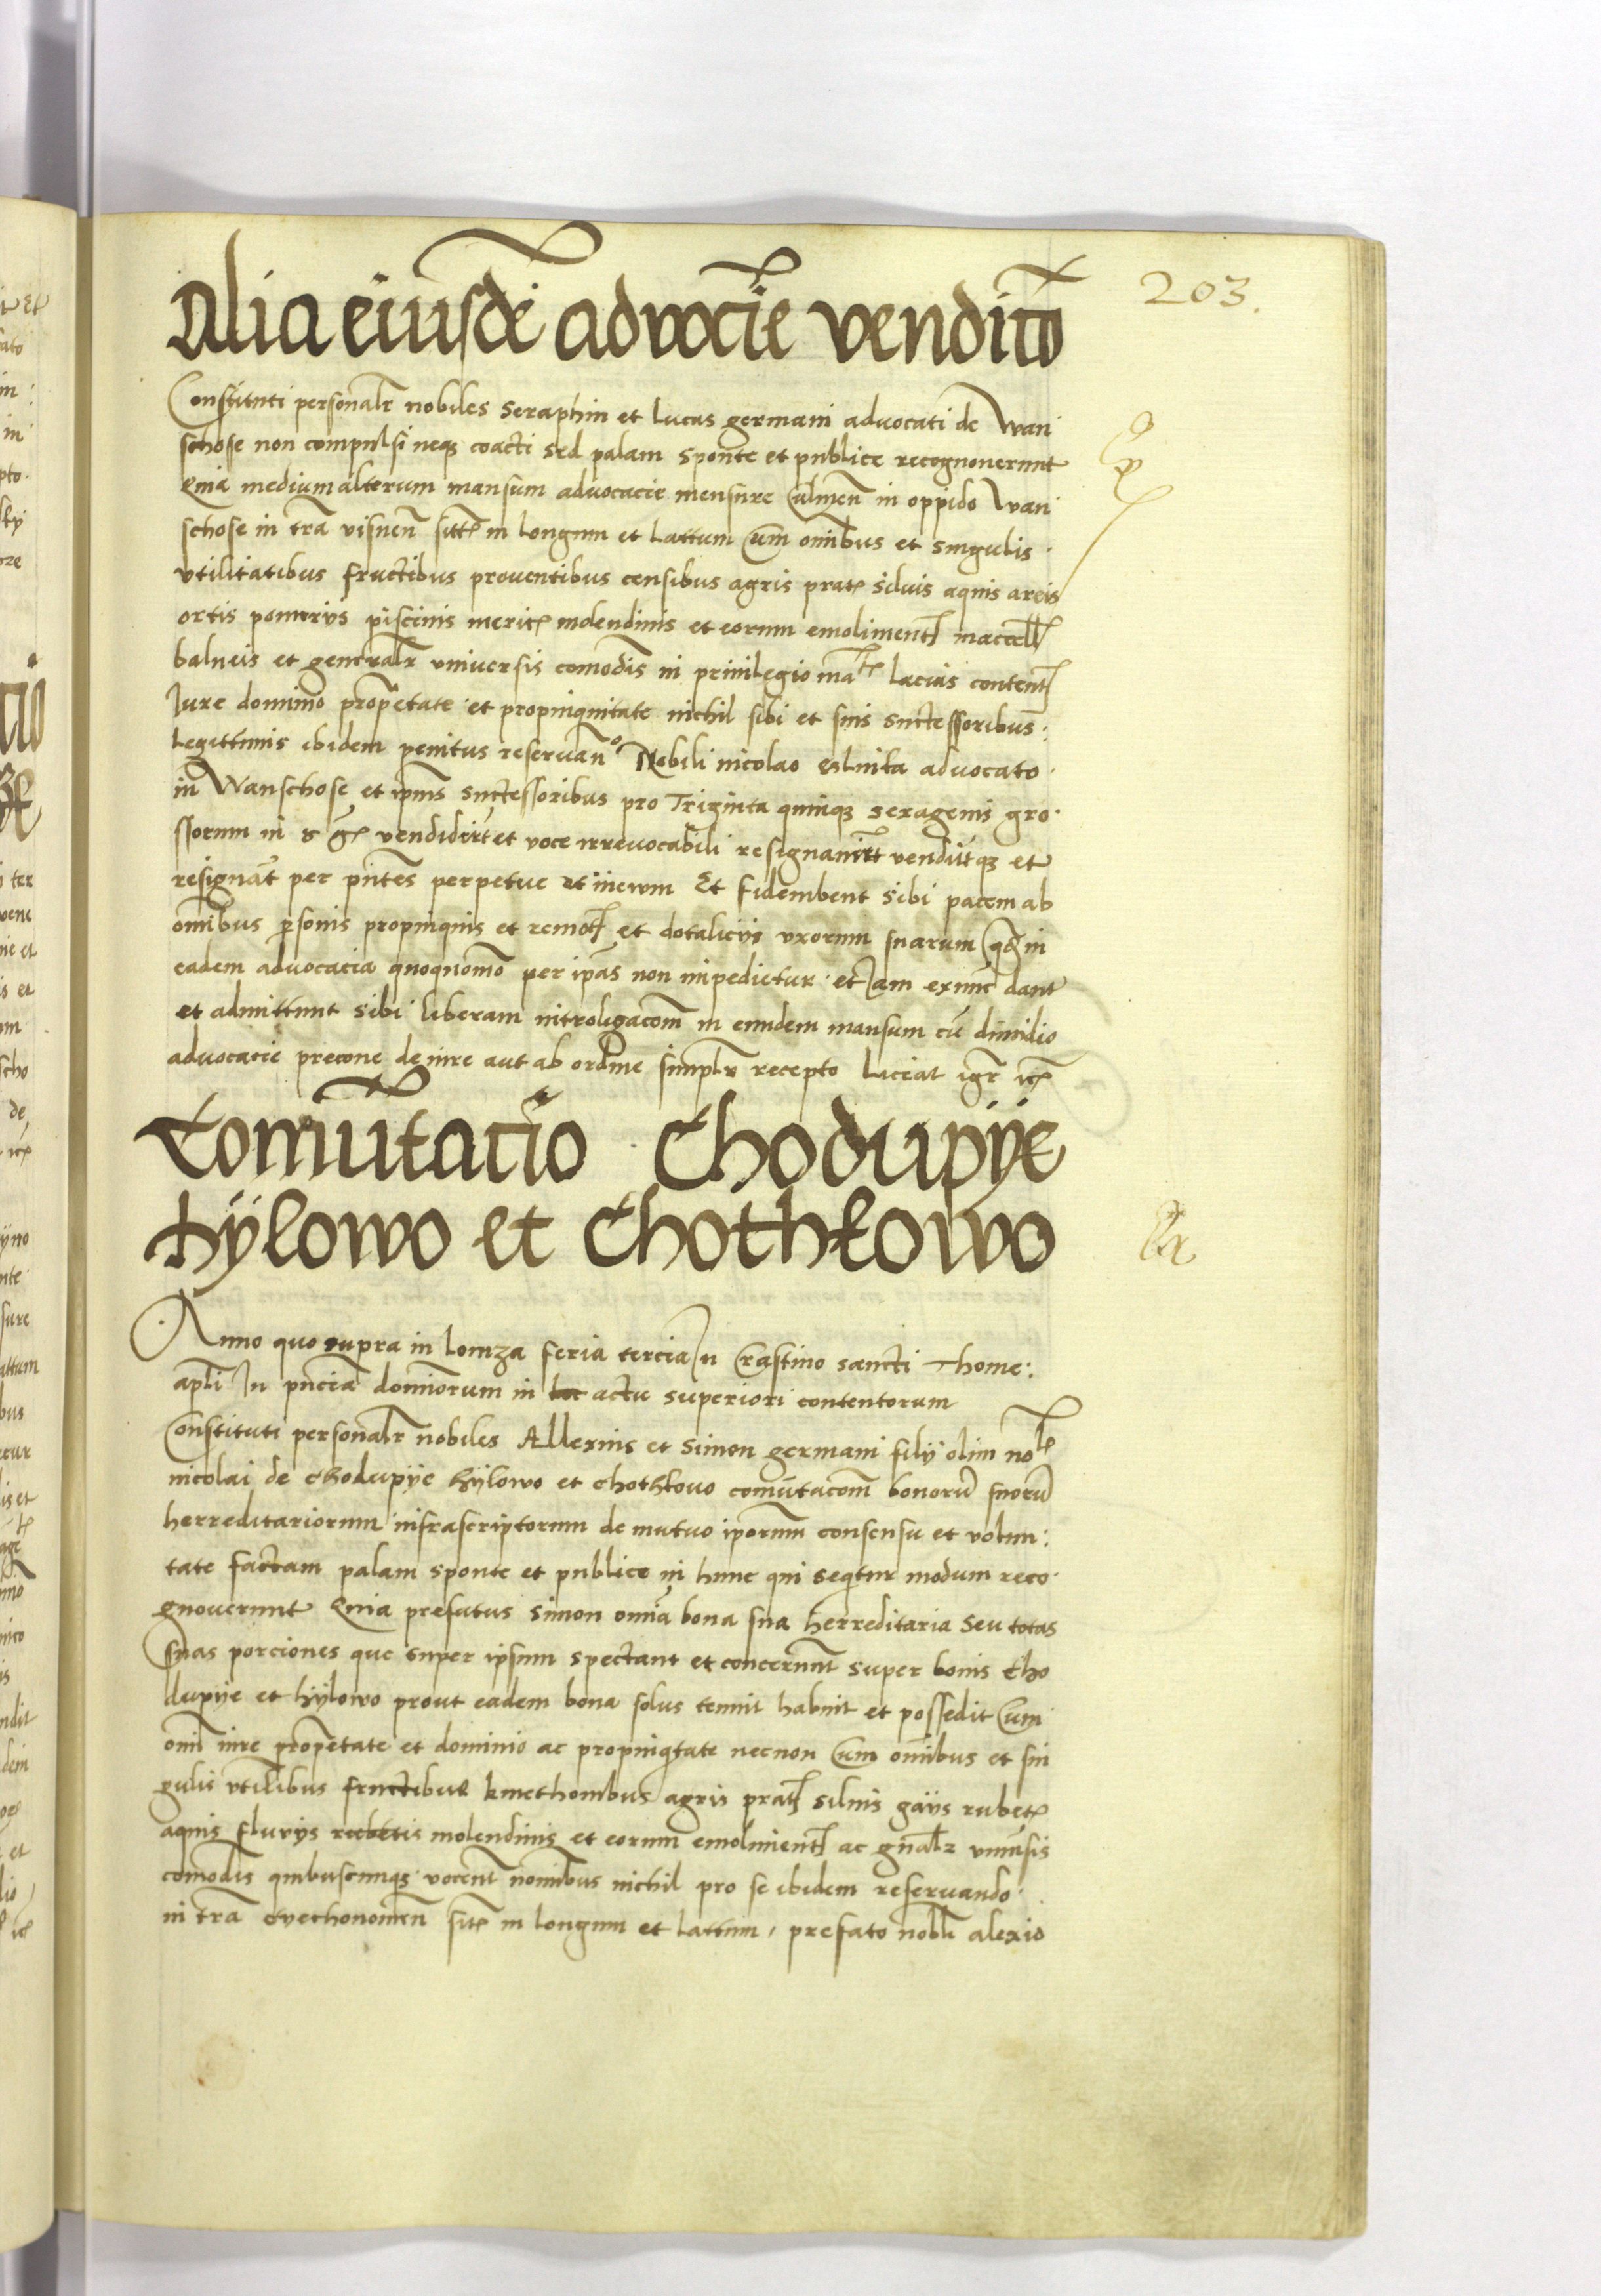 203.
Alia eiusdē advocīe venditō
Constituti personalr nobiles Seraphin et lucas germani advocati de Wan
schosse non compulsi neqз coacti sed palam sponte et publice recognoverunt
Quia medium alterum mansum advocacie mensure Culmen̄ in oppido Wan
schose in tr̄a visnen̄ sitt in longum et lattum Cum omībus et singulis
vtilitatibus fructibus proventibus censibus agris prat siluis aquis areis
ortis pomerijs piscinis merit molendinis et eorum emoliment maccell
balneis et generalr vniuersis comodis in priuilegio lacius content
Jure dominio prop̄etate et propinquitate nichil sibi et suis successoribus:
legittimis ibidem penitus reseruan̄o Nobili nicolao advocato
in Wanschose et ip̄ius successoribus pro Triginta quinqз sexagenis gro
ssorum in vendiderūt et voce irrevocabili resignauerūt vendūtqз et
resignāt per p̄ntes perpetue et inewm Et fidembent sibi pacem ab
omībus p̄sonis propinquis et remot et dotalicijs vxorum suarum in
eadem advocacia quoquomō per ip̄as non impedietur et Jam exnūc dant
et admittunt sibi liberam introligacōm in eundem mansum cū dimidio
advocacie precone de iure aut ab ordine simplr recepto laciat igr̄ ict
Comūtacio Chodupÿe
Hÿlowo et Chothkowo
Ex
Anno quo supra in lomza feria tercia In Crastino sancti Thome:
apl̄i In pn̄cia dominorum in actu superiori contentorum
Constituti personalr nobiles Allexius et Simon germani filij olim nol
nicolai de Chodupÿe hÿlowo et Chothkouo comūtacōm bonorū suorū
herreditariorum infrascriptorum de mutuo ip̄orum consensu et volun:
tate factam palam sponte et publice in hunc qui seqtur modum reco
gnoverunt Quia prefatus Simon omīa bona sua herreditaria seu totas
suas porciones que super ipsum spectant et concernūt super bonis Cho
dupÿe et hÿlowo prout eadem bona solus tenuit habuit et possedit Cum
omī iure prop̄etate et dominio ac propinq̄tate necnon Cum omībus et sin
gulis vtilibus fructibus kmethonibus agris prat siluis gaijs rubet
aquis fluvijs rubetis molendinis et eorum emoliment ac gn̄alr vniūsis
comodis quibuscunqз vocent nomībus nichil pro se ibidem reseruando
in tr̄a cyechonowen̄ sit in longum et lattum, prefato nobli alexio